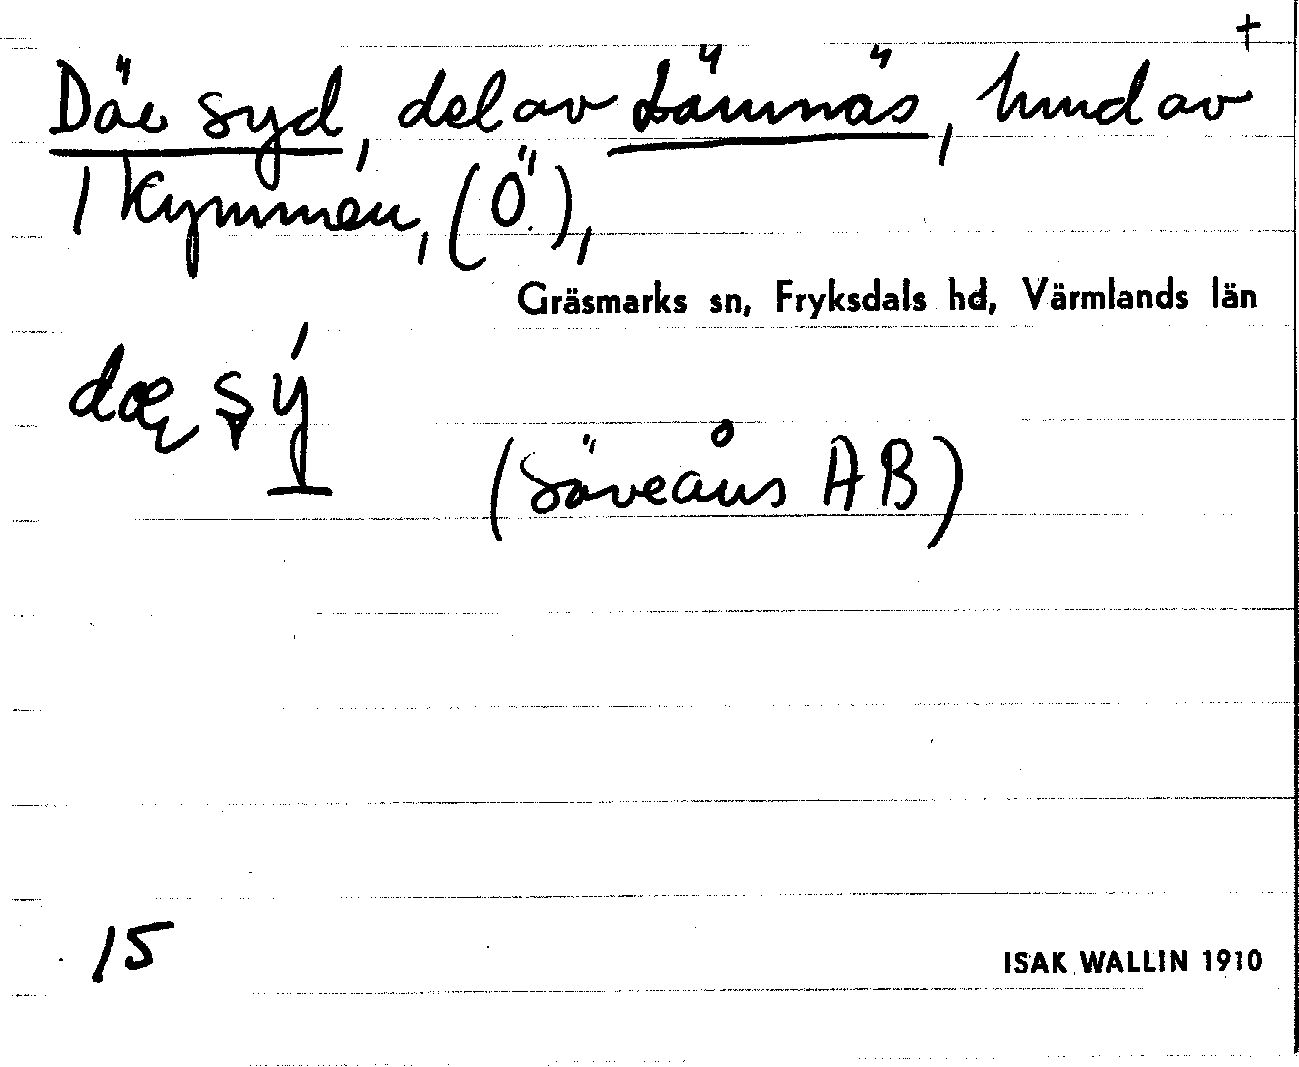 +
Däe syd, del av Lämnäs, hmd av
1 Kymmen, (Ö.),
Gräsmarks sn, Fryksdals hd, Värmlands län
dæ sý
(Säveåns AB)
15
ISAK WALLIN 1910